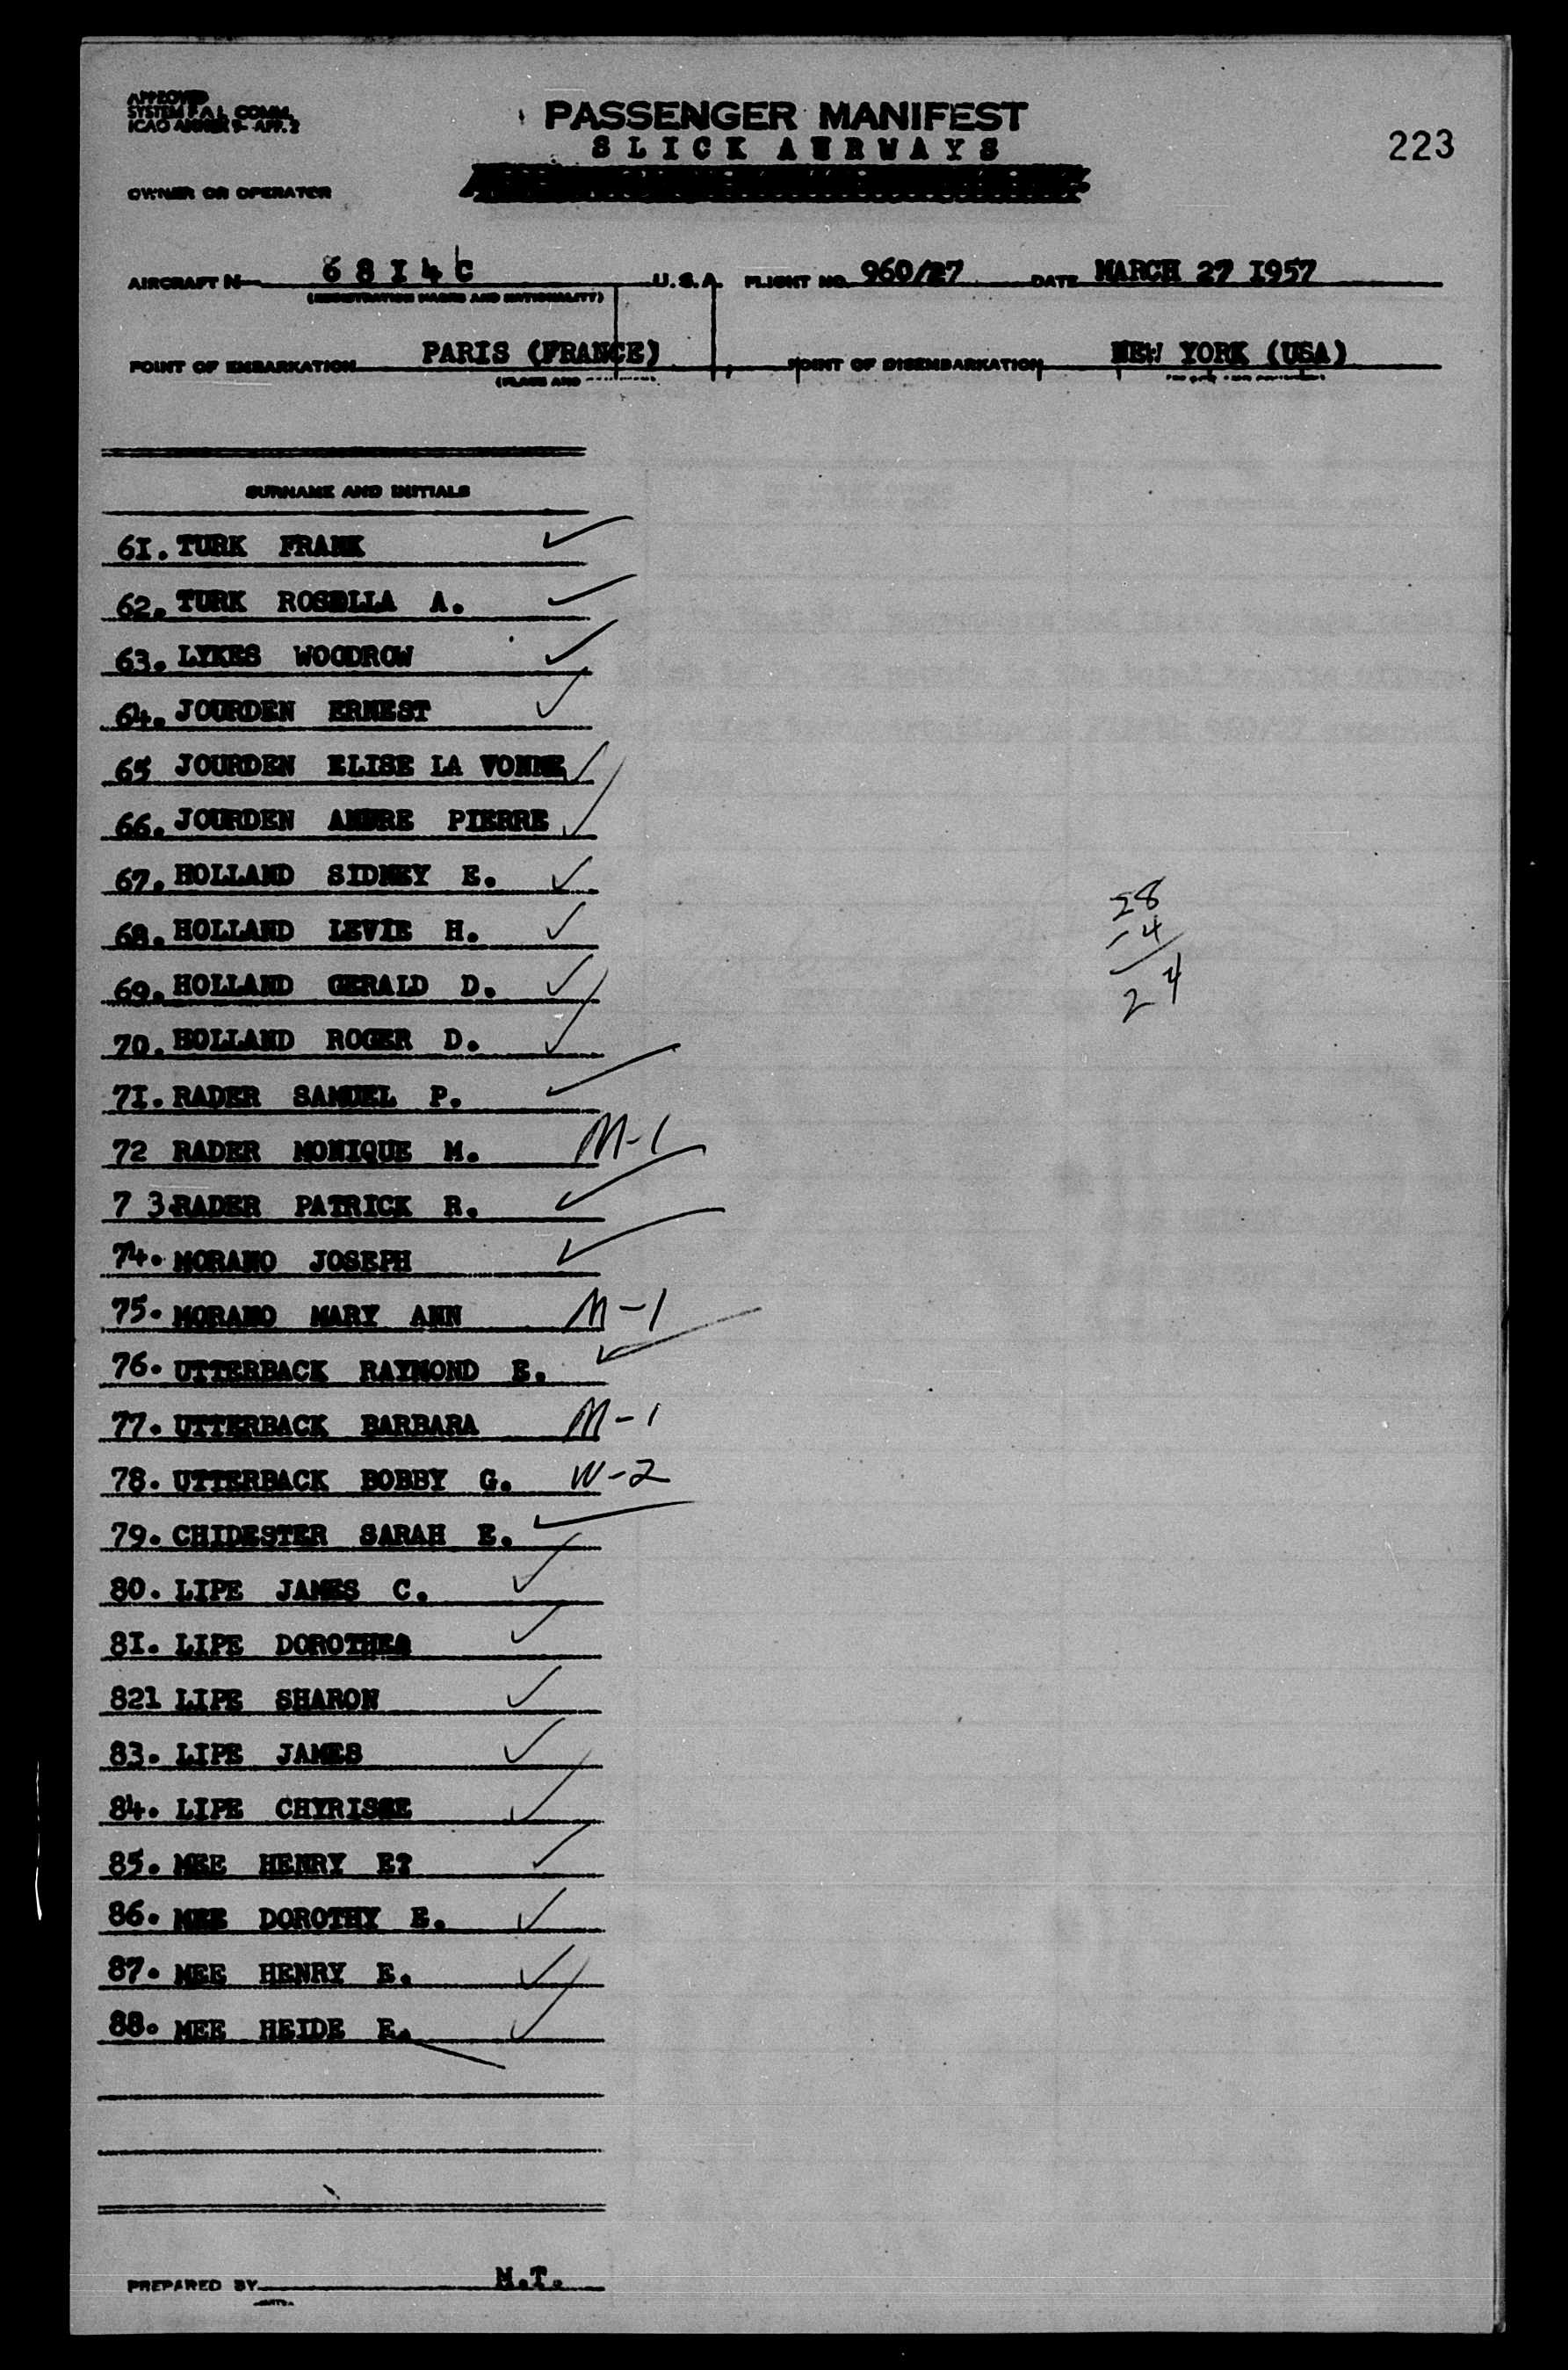 APPROVED
SYSTEM F.A.L. COMM.
ICAO ANNEX 9- APP. 2
PASSENGER MANIFEST
SLICK AIRWAYS
223
OWNER OR OPERATOR
AIRCRAFT N 6 8 I 4 C U.S.A. FLIGHT NO. 960/27 DATE MARCH 27 I957
(REGISTRATION MARKS AND NATIONALITY)
POINT OF EMBARKATION PARIS (FRANCE) POINT OF DISEMBARKATION NEW YORK (USA)
(PLACE AND
SURNAME AND INITIALS
6I. TURK FRANK
62. TURK ROSELLA A.
63. LYKES WOODROW
64. JOURDEN ERNEST
65 JOURDEN ELISE LA VONNE
66. JOURDEN ANDRE PIERRE
67. HOLLAND SIDNEY E.
68. HOLLAND LEVIE H.
69. HOLLAND GERALD D.
70. HOLLAND ROGER D.
7I. RADER SAMUEL P.
72 RADER MONIQUE M. M-1
7 3.RADER PATRICK R.
74. MORANO JOSEPH
75. MORANO MARY ANN M-1
76. UTTERBACK RAYMOND E.
77. UTTERBACK BARBARA M-1
78. UTTERBACK BOBBY G. W-2
79. CHIDESTER SARAH E.
80. LIPE JAMES C.
8I. LIPE DOROTHEA
821 LIPE SHARON
83. LIPE JAMES
84. LIPE CHYRISSE
85. MEE HENRY E?
86. MEE DOROTHY E.
87. MEE HENRY E.
88. MEE HEIDE E.
28
-4
24
PREPARED BY M.T.